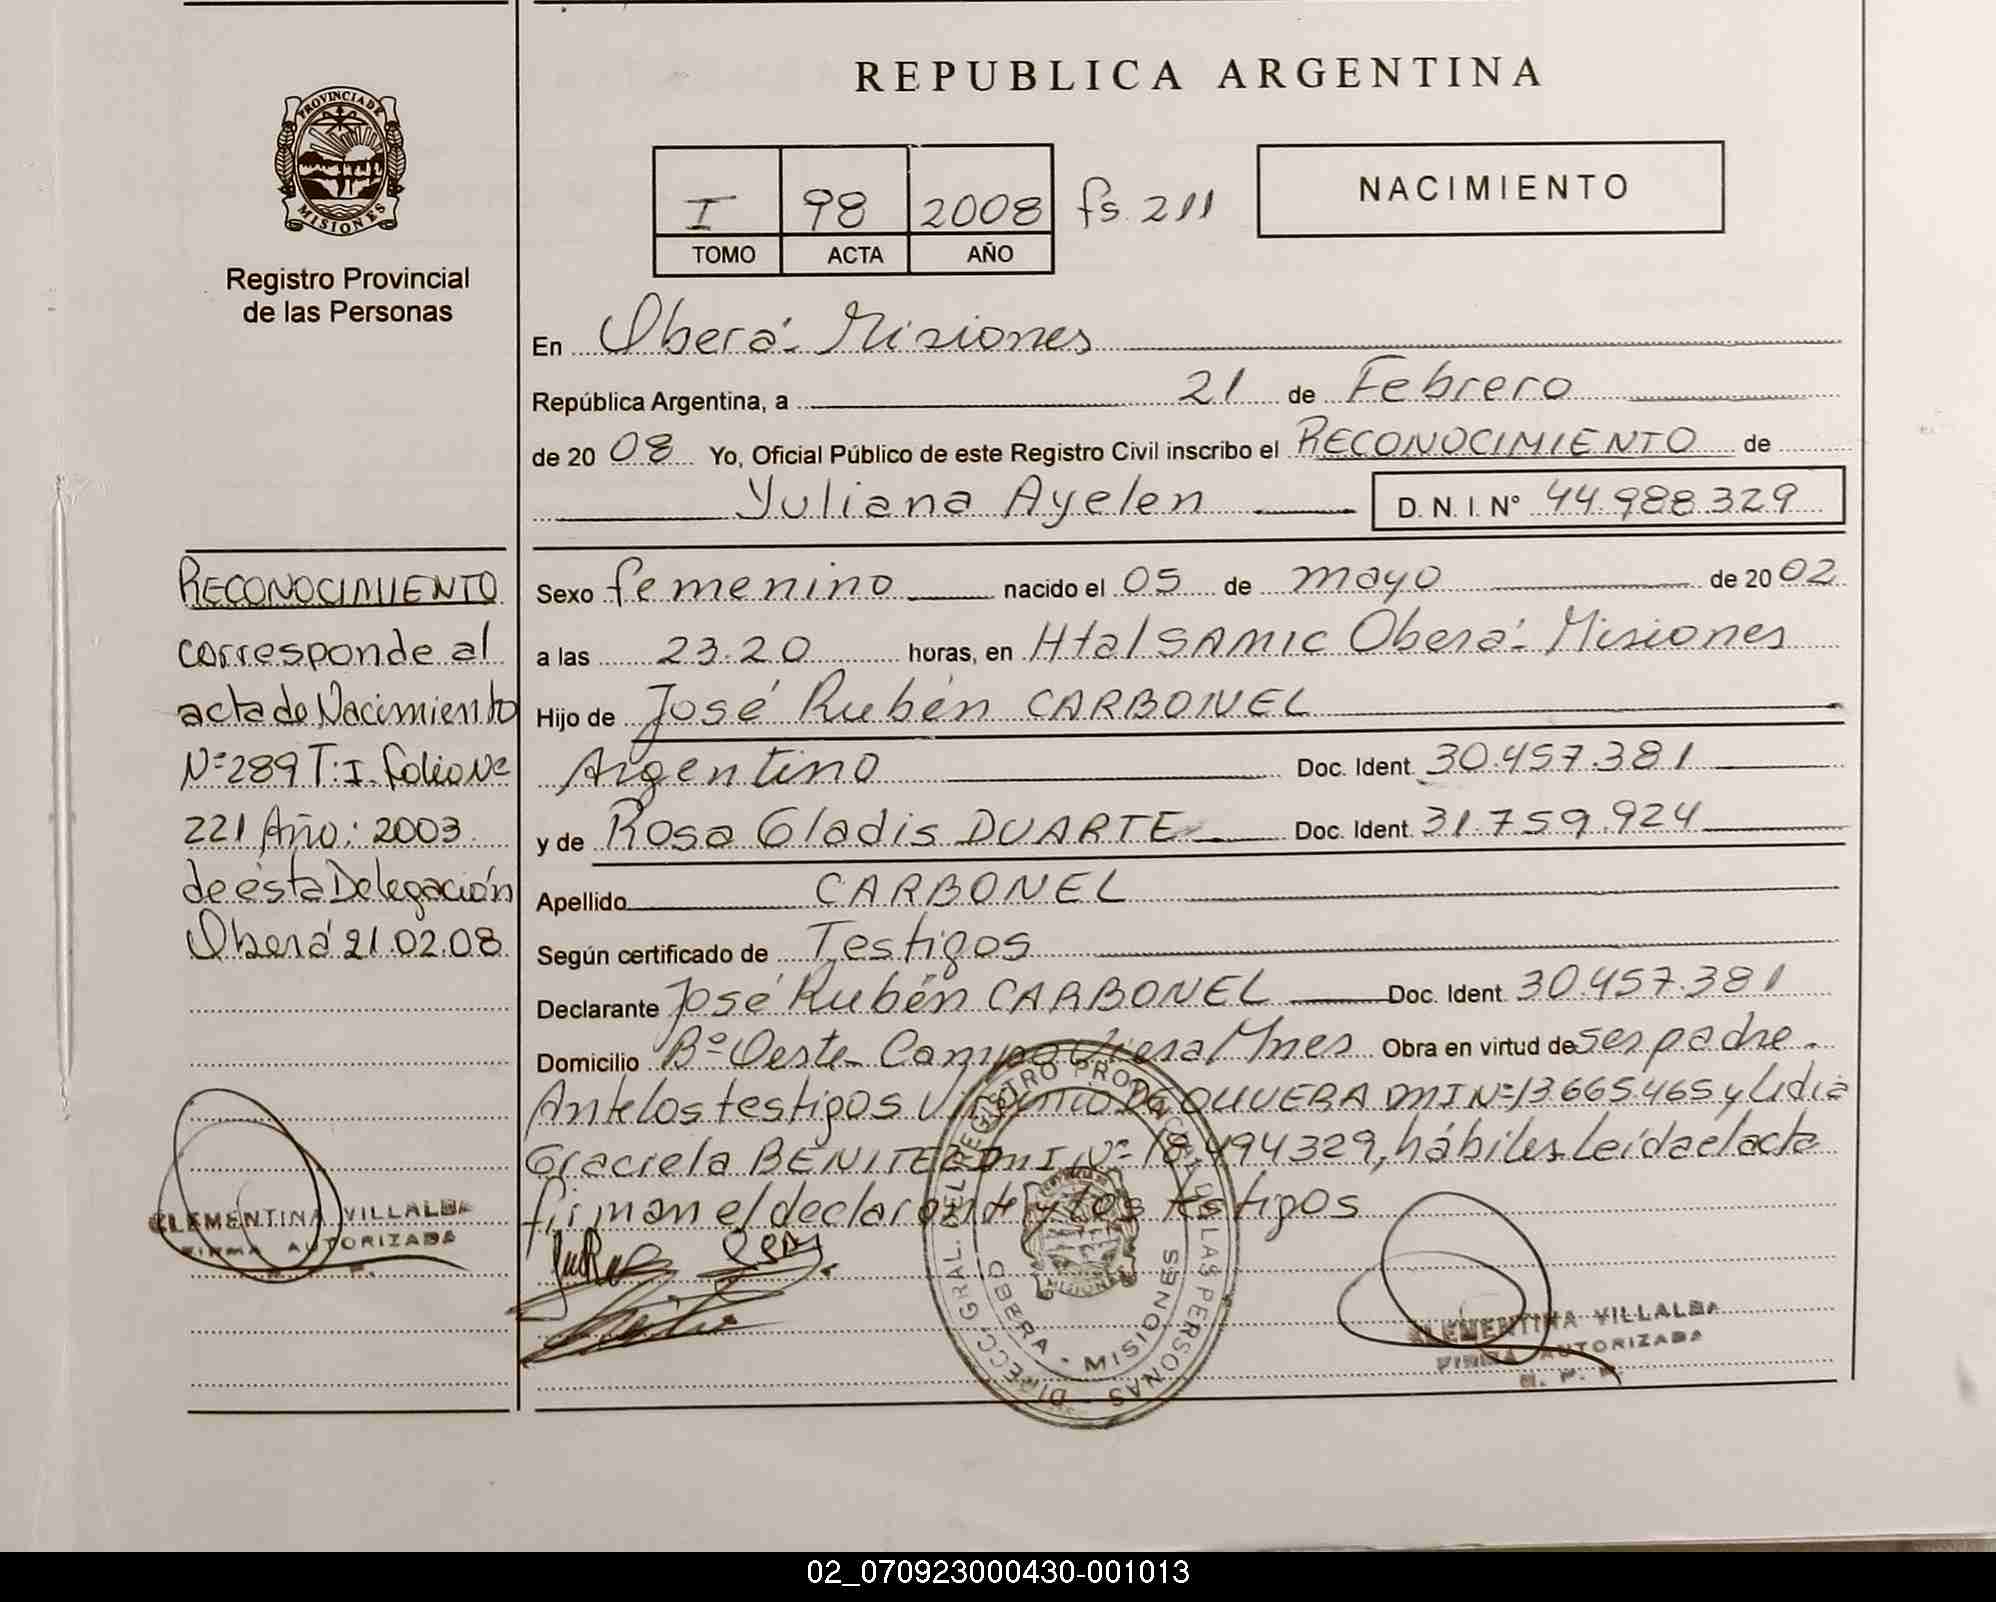 REPUBLICA ARGENTINA
PROVINCIA DE MISIONES
Registro Provincial
de las Personas
I 98 2008 fs. 211
TOMO ACTA AÑO
NACIMIENTO
En Oberá - Misiones
República Argentina, a 21 de Febrero
de 2008 Yo, Oficial Público de este Registro Civil inscribo el RECONOCIMIENTO de
Yuliana Ayelen D. N. I. Nº 44.988.329
Sexo femenino nacido el 05 de mayo de 2002
a las 23.20 horas, en Htal SAMIC Oberá - Misiones
Hijo de José Rubén CARBONEL
Argentino Doc. Ident. 30.457.381
y de Rosa Gladis DUARTE Doc. Ident. 31.759.924
Apellido CARBONEL
Según certificado de Testigos
Declarante José Rubén CARBONEL Doc. Ident. 30.457.381
Domicilio Bº Oeste - Campo Viera Mnes Obra en virtud de ser padre.
Ante los testigos DE OLIVERA DNI Nº 13.665.465 y Lidia
Graciela BENITEZ DNI Nº 18.494.329, hábiles. Leída el acta
firman el declarante y los testigos
RECONOCIMIENTO
corresponde al
acta de Nacimiento
Nº 289 T: I. folio Nº
221 Año: 2003.
de ésta Delegación
Oberá 21.02.08
CLEMENTINA VILLALBA
FIRMA AUTORIZADA
DIRECC. GRAL. DEL REGISTRO PROVINCIAL DE LAS PERSONAS
OBERA - MISIONES
CLEMENTINA VILLALBA
FIRMA AUTORIZADA
02_070923000430-001013